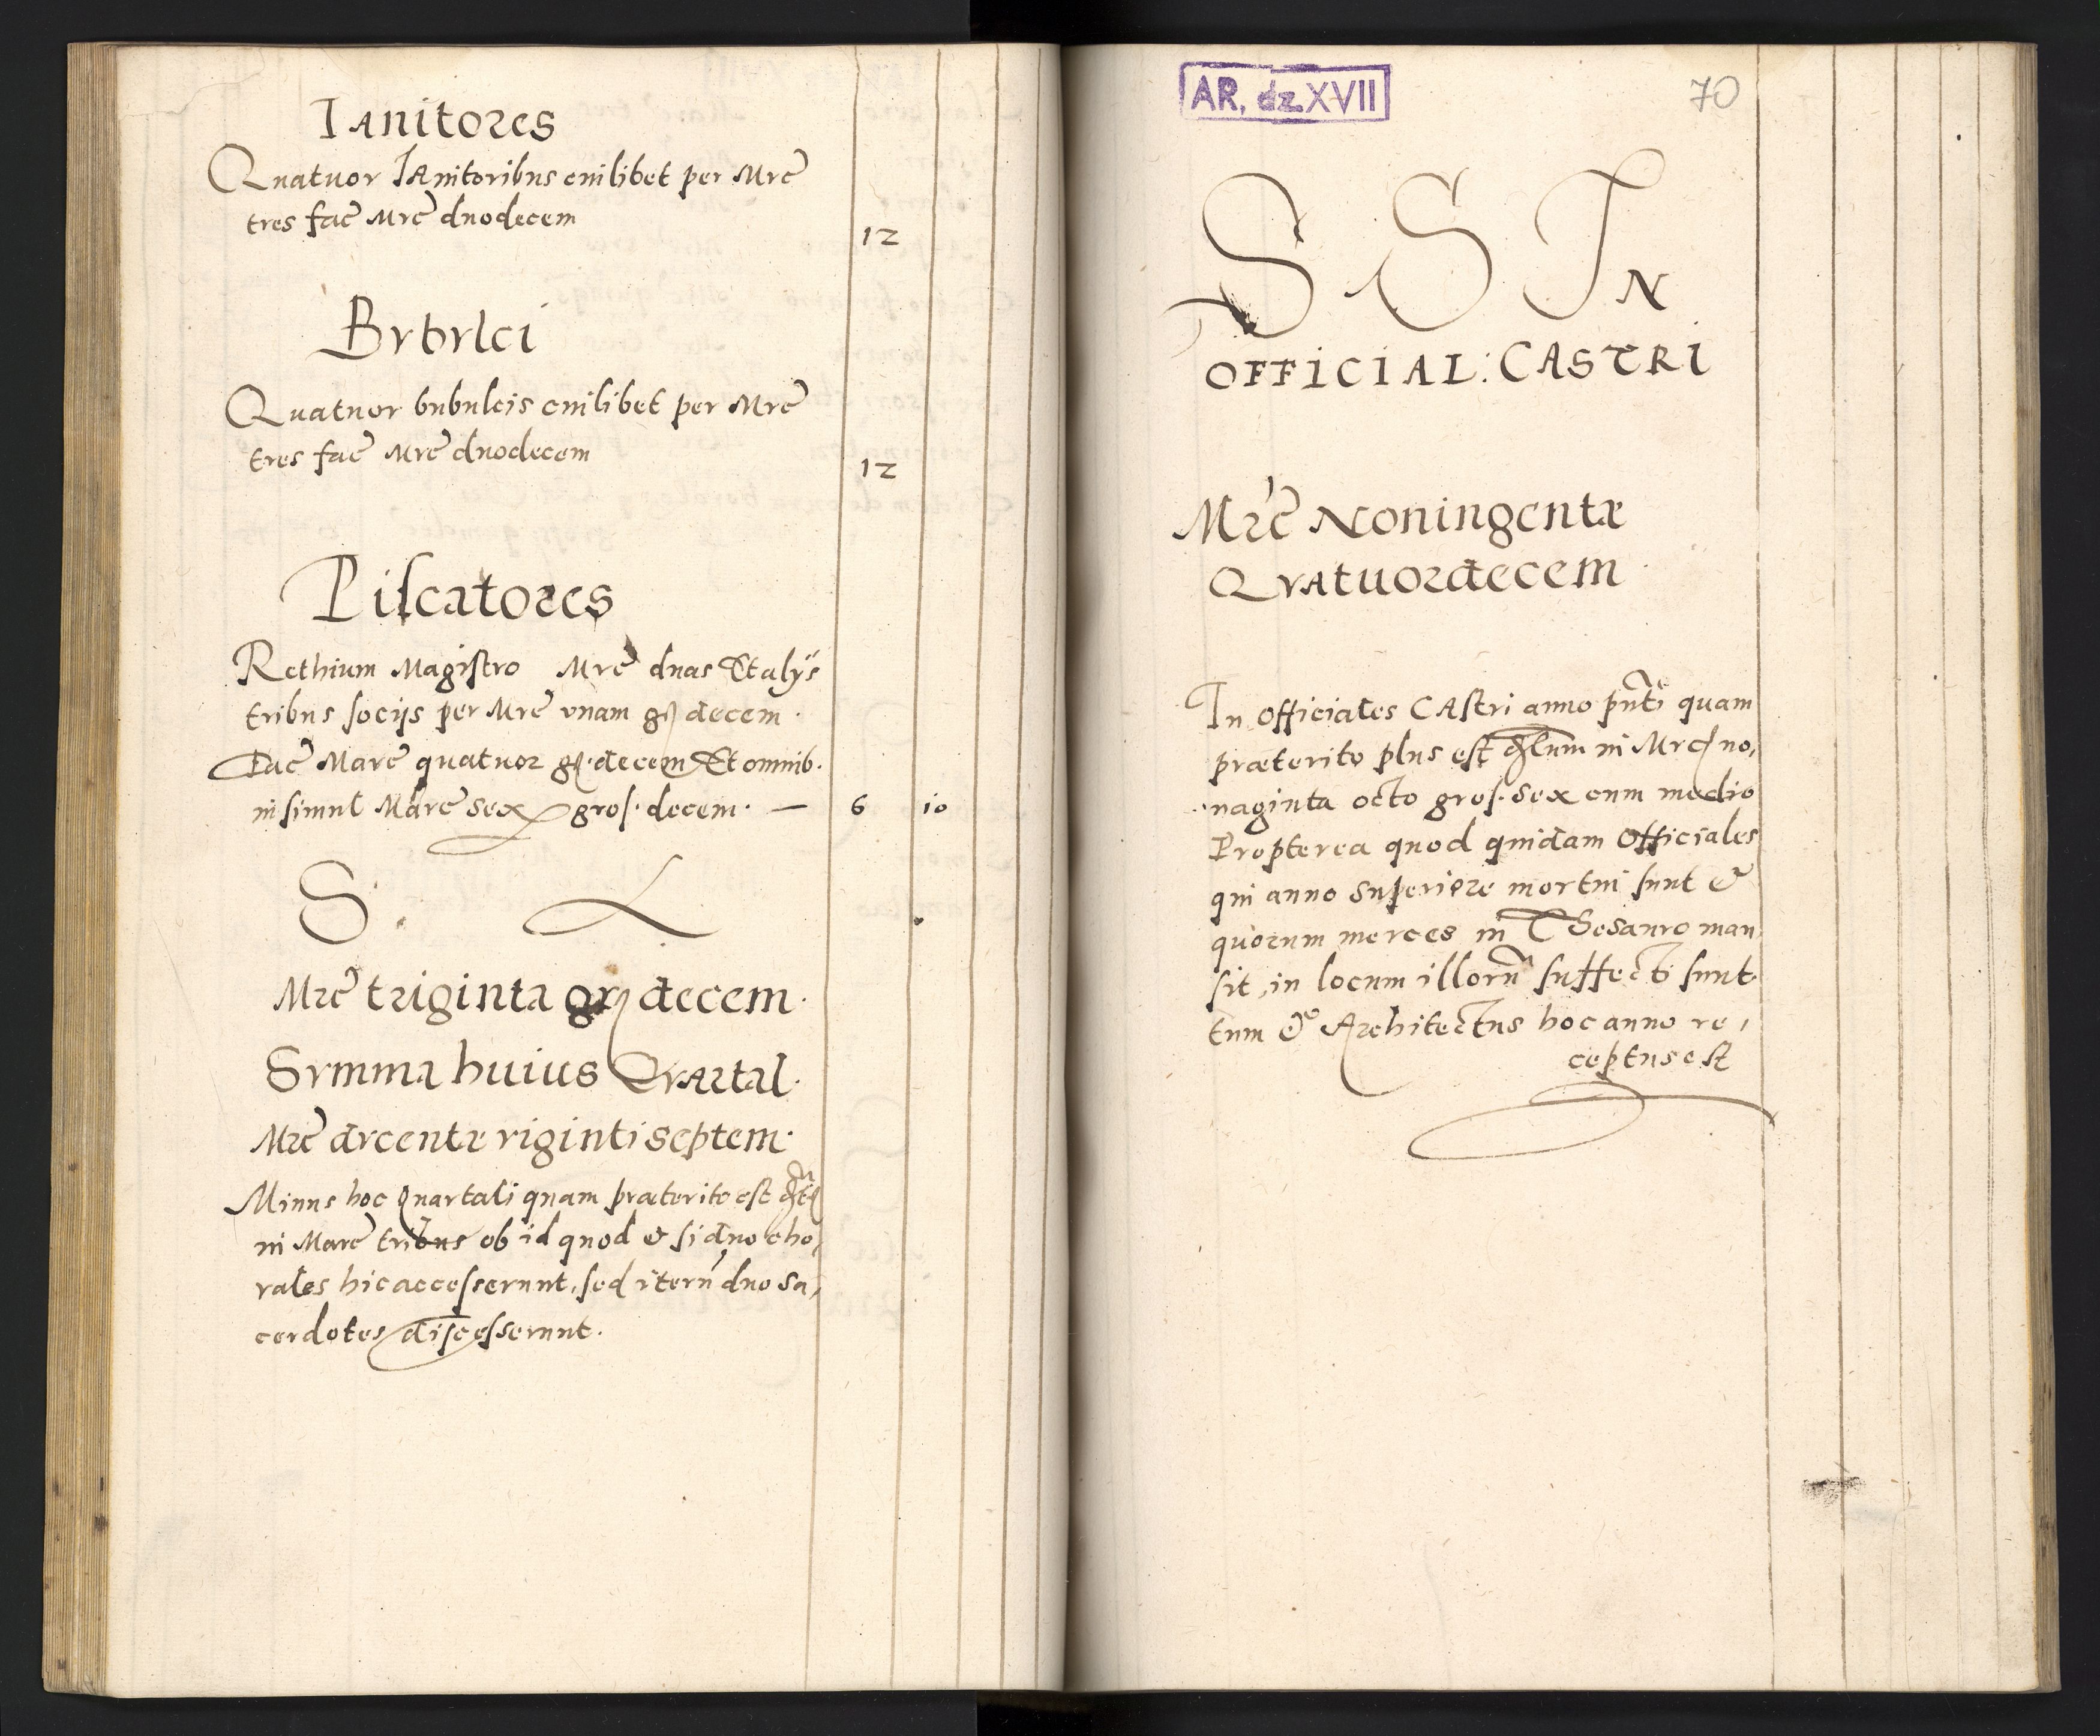 Ianitores
Quatuor Ianitoribus cuilibet per Mrc
tres fac Mrc duodecem
12
Bvbvlci
Quatuor bubulcis cuilibet per Mrc
tres fac Mrc duodecem
12
Piscatores
Rethium Magistro Mrc duas Et alys
tribus socijs per Mrc vnam gr decem.
Fac Marc quatuor gr. decem Et omnib.
in simul Marc sex gros. decem. — 6 10
S. L
Mrc triginta gr decem.
Svmma huius Qvartal.
Mrc dvcentæ viginti septem.
Minus hoc Quartali quam præterito est
in Marc tribus ob id quod & si duo cho,
rales hic accesserunt, sed iterũ duo sa,
cerdotes discesserunt.
AR. dz. XVII
70
S S In
OFFICIAL: CASTRI
Mrc Noningentæ
Qvatuordecem
In Officiales Castri anno pñti quam
præterito plus est in Mrc no,
naginta octo gros. sex cum medio
Propterea quod quidam Officiales
qui anno superiore mortui sunt &
quorum merces in Thesauro man
sit, in locum illorũ suffecti sunt
tum & Architectus hoc anno re,
ceptus est